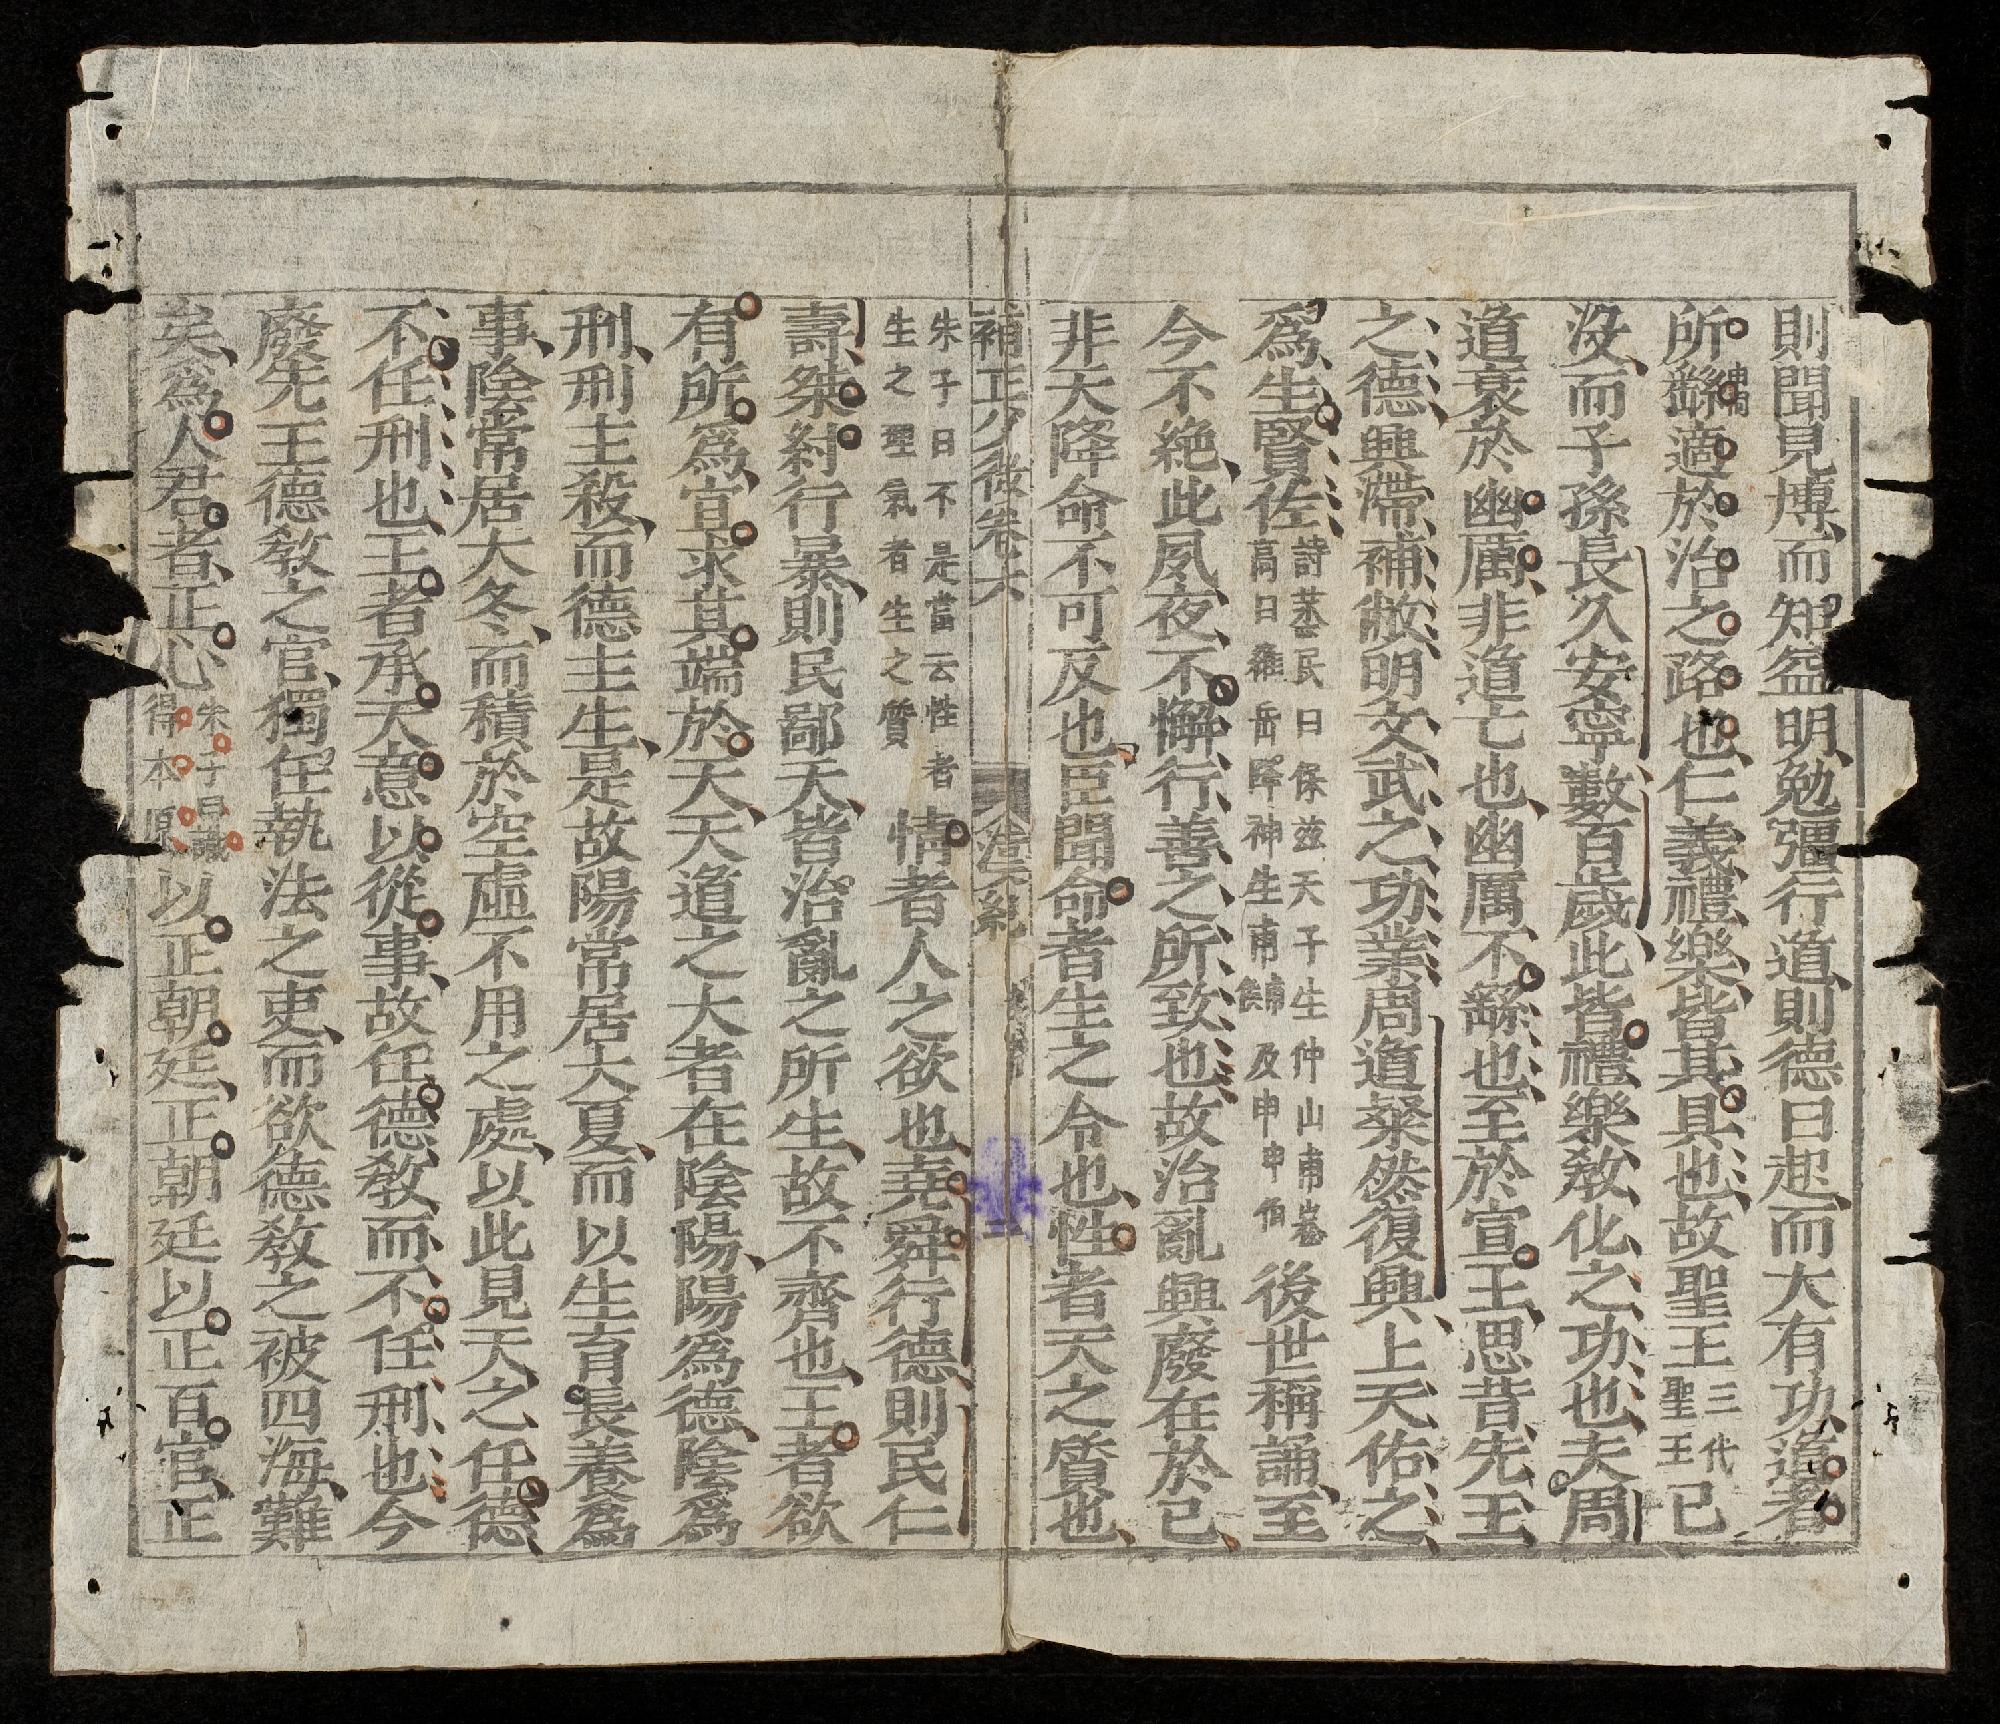 則聞見博而知益明勉彊行道則德日起而大有功道者
所繇由同適於治之路也仁義禮樂皆其具也故聖王三代聖王已
沒而子孫長久安寧數百歲此皆禮樂敎化之功也夫周
道衰於幽厲非道亡也幽厲不繇也至於宣王思昔先王
之德興滯補敝明文武之功業周道粲然復興上天佑之
爲生賢佐詩蒸民曰保玆天子生仲山甫崧高曰維岳降神生甫甫侯及申申伯後世稱誦至
今不絶此夙夜不懈行善之所致也故治亂興廢在於已
非天降命不可反也臣聞命者生之令也性者天之質也
補正少微卷六 漢紀
朱子曰不是當云性者生之理氣者生之質情者人之欲也堯舜行德則民仁
壽桀紂行暴則民鄙夭皆治亂之所生故不齊也王者欲
有所爲宜求其端於天天道之大者在陰陽陽爲德陰爲
刑刑主殺而德主生是故陽常居大夏而以生育長養爲
事陰常居大冬而積於空虛不用之處以此見天之任德
不任刑也王者承天意以從事故任德敎而不任刑也今
廢先王德敎之官獨任執法之吏而欲德敎之被四海難
矣爲人君者正心朱子曰識得本原以正朝廷正朝廷以正百官正